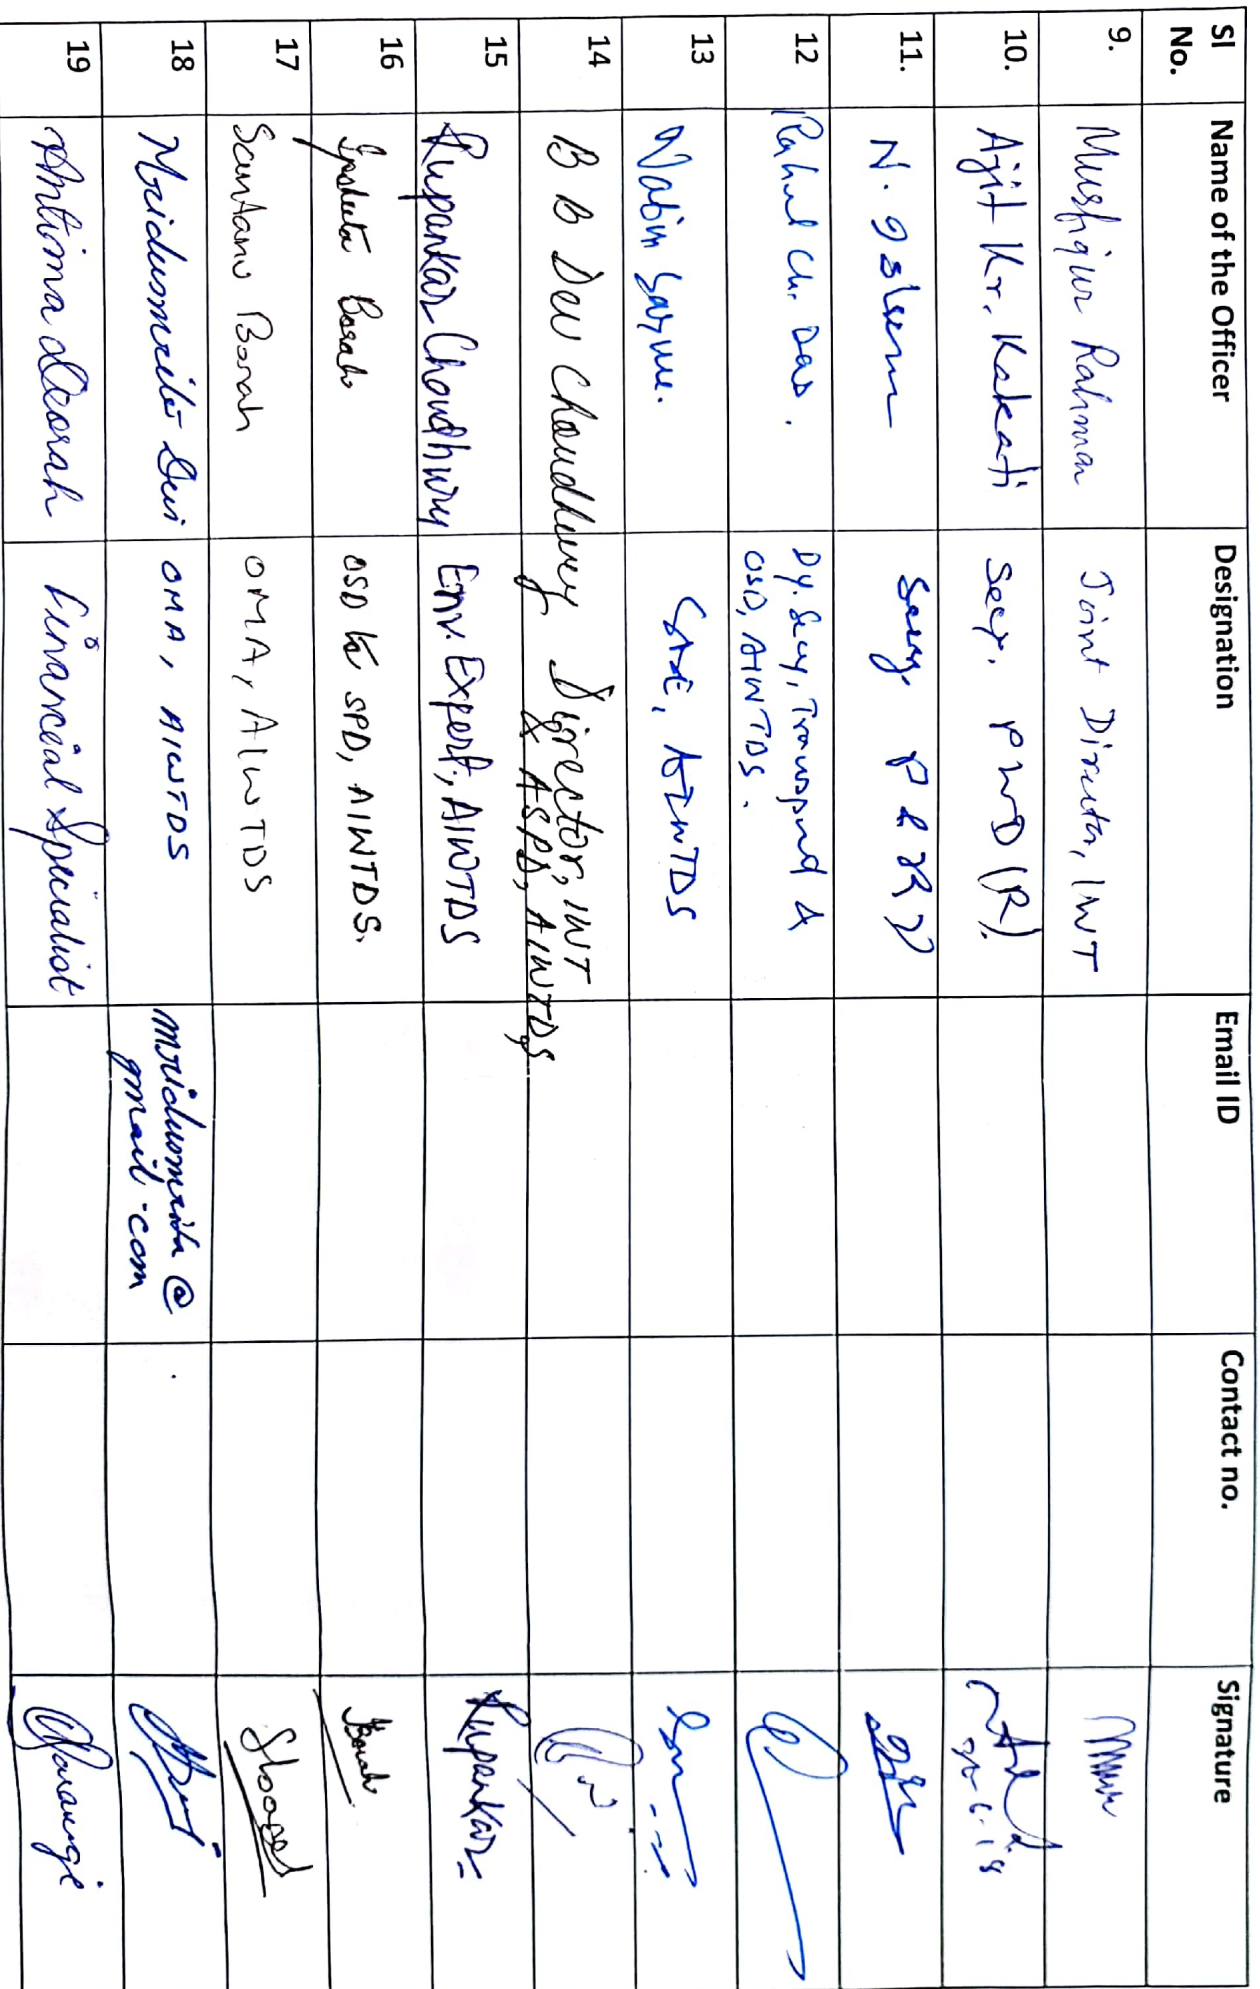 Sl No. Name of the Officer Designation Email ID Contact no. Signature
9. Musfiqur Rahman Joint Director, IWT
10. Ajit Kr. Kakati Secy. PWD (R).
11. N. Islam Secy. P & RD
12 Rahul Ch. Das. Dy. Secy, Transport &
OSD, AIWTDS.
13 Nabin AIWTDS
14 B B Dev Choudhury Director, IWT
& ASPD, AIWTDS
15 Rupankar Choudhury Env. Expert, AIWTDS Rupankar
16 Ipsheeta Borah OSD to SPD, AIWTDS. Borah
17 Santanu Borah OMA, AIWTDS
18 Mridusmrita Devi OMA, AIWTDS mridusmrita@
gmail.com
19 Antima Deorah Financial Specialist